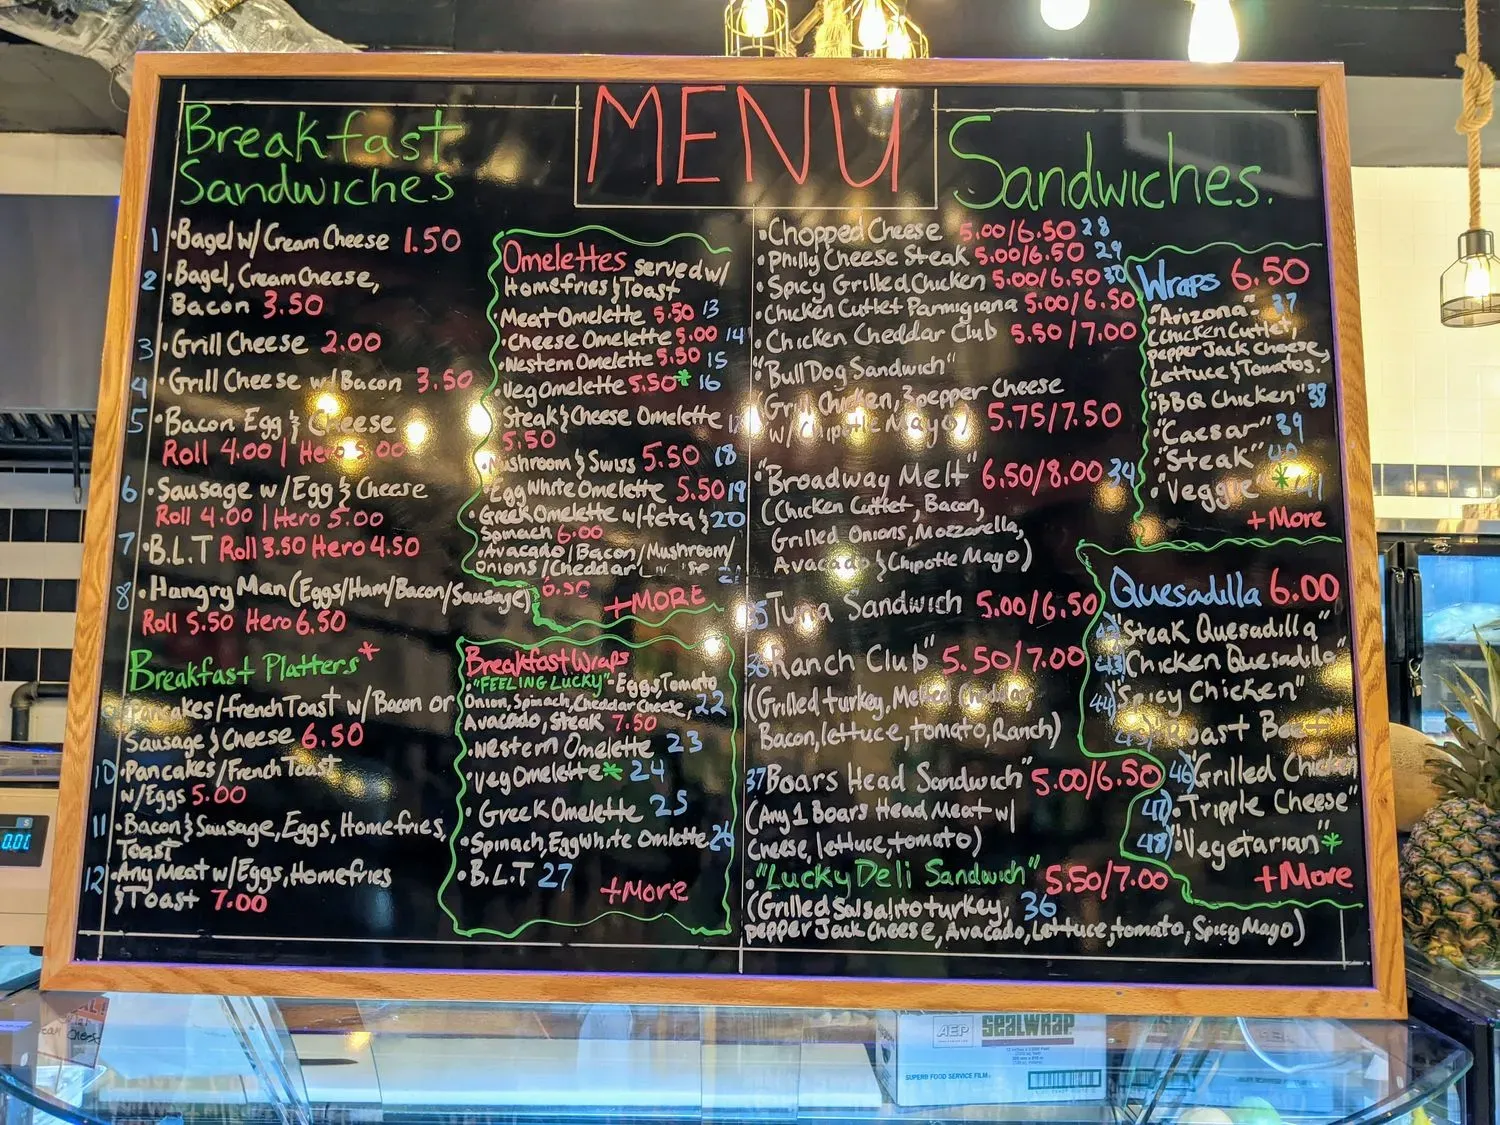 MENU
Breakfast
Sandwiches
1 •Bagel w/ Cream Cheese 1.50
2 •Bagel, Cream Cheese,
Bacon 3.50
3 •Grill Cheese 2.00
4 •Grill Cheese w/ Bacon 3.50
5 •Bacon Egg & Cheese
Roll 4.00 | Hero 5.00
6 •Sausage w/ Egg & Cheese
Roll 4.00 | Hero 5.00
7 •B.L.T Roll 3.50 Hero 4.50
8 •Hangry Man (Eggs/Ham/Bacon/Sausage)
Roll 5.50 Hero 6.50
Breakfast Platters*
Pancakes/french Toast w/ Bacon or
Sausage & Cheese 6.50
10 •Pancakes/French Toast
w/Eggs 5.00
11 •Bacon & Sausage, Eggs, Homefries,
Toast
12 •Any Meat w/Eggs, Homefries
& Toast 7.00
Omelettes served w/
Homefries & Toast
•Meat Omelette 5.50 13
•Cheese Omelette 5.00 14
•Western Omelette 5.50 15
•Veg Omelette 5.50* 16
Steak & Cheese Omelette
5.50
•Mushroom & Swiss 5.50 18
•Egg White Omelette 5.50 19
•Greek Omelette w/feta & 20
Spinach 6.00
•Avacado/Bacon/Mushroom/
Onions/Cheddar
6.50 +MORE
Breakfast Wraps
•"FEELING LUCKY"- Eggs, Tomato
Onion, Spinach, Cheddar Cheese, 22
Avacado, Steak 7.50
•Western Omelette 23
•Veg Omelette* 24
•Greek Omelette 25
•Spinach, Egg White Omlette 26
•B.L.T 27
+More
Sandwiches.
•Chopped Cheese 5.00/6.50 28
•Philly Cheese Steak 5.00/6.50 29
•Spicy Grilled Chicken 5.00/6.50 30
•Chicken Cutlet Parmigiana 5.00/6.50
•Chicken Cheddar Club 5.50/7.00
•"Bull Dog Sandwich"
(Grill Chicken, 3 pepper Cheese
w/ Chipotle Mayo) 5.75/7.50
"Broadway Melt" 6.50/8.00 34
(Chicken Cutlet, Bacon,
Grilled Onions, Mozzarella,
Avacado & Chipotle Mayo)
35 Tuna Sandwich 5.00/6.50
36 Ranch Club" 5.50/7.00
(Grilled turkey, Melted Cheddar,
Bacon, lettuce, tomato, Ranch)
37 Boars Head Sandwich" 5.00/6.50
(Any 1 Boars Head Meat w/
Cheese, lettuce, tomato)
•"Lucky Deli Sandwich" 5.50/7.00
(Grilled Salsalito turkey, 36
pepper Jack Cheese, Avacado, Lettuce, tomato, Spicy Mayo)
Wraps 6.50
•"Arizona"- 37
(Chicken Cutlet,
pepper Jack Cheese,
Lettuce & Tomatos.
•"BBQ Chicken" 38
•"Caesar" 39
•"Steak" 40
•"Veggie" * 41
+More
Quesadilla 6.00
42 "Steak Quesadilla"
43 "Chicken Quesadilla"
44 "Spicy Chicken"
Roast Beef"
46 "Grilled Chicken
47 •Tripple Cheese"
48 "Vegetarian"*
+More
AEP SEALWRAP
SUPERB FOOD SERVICE FILM